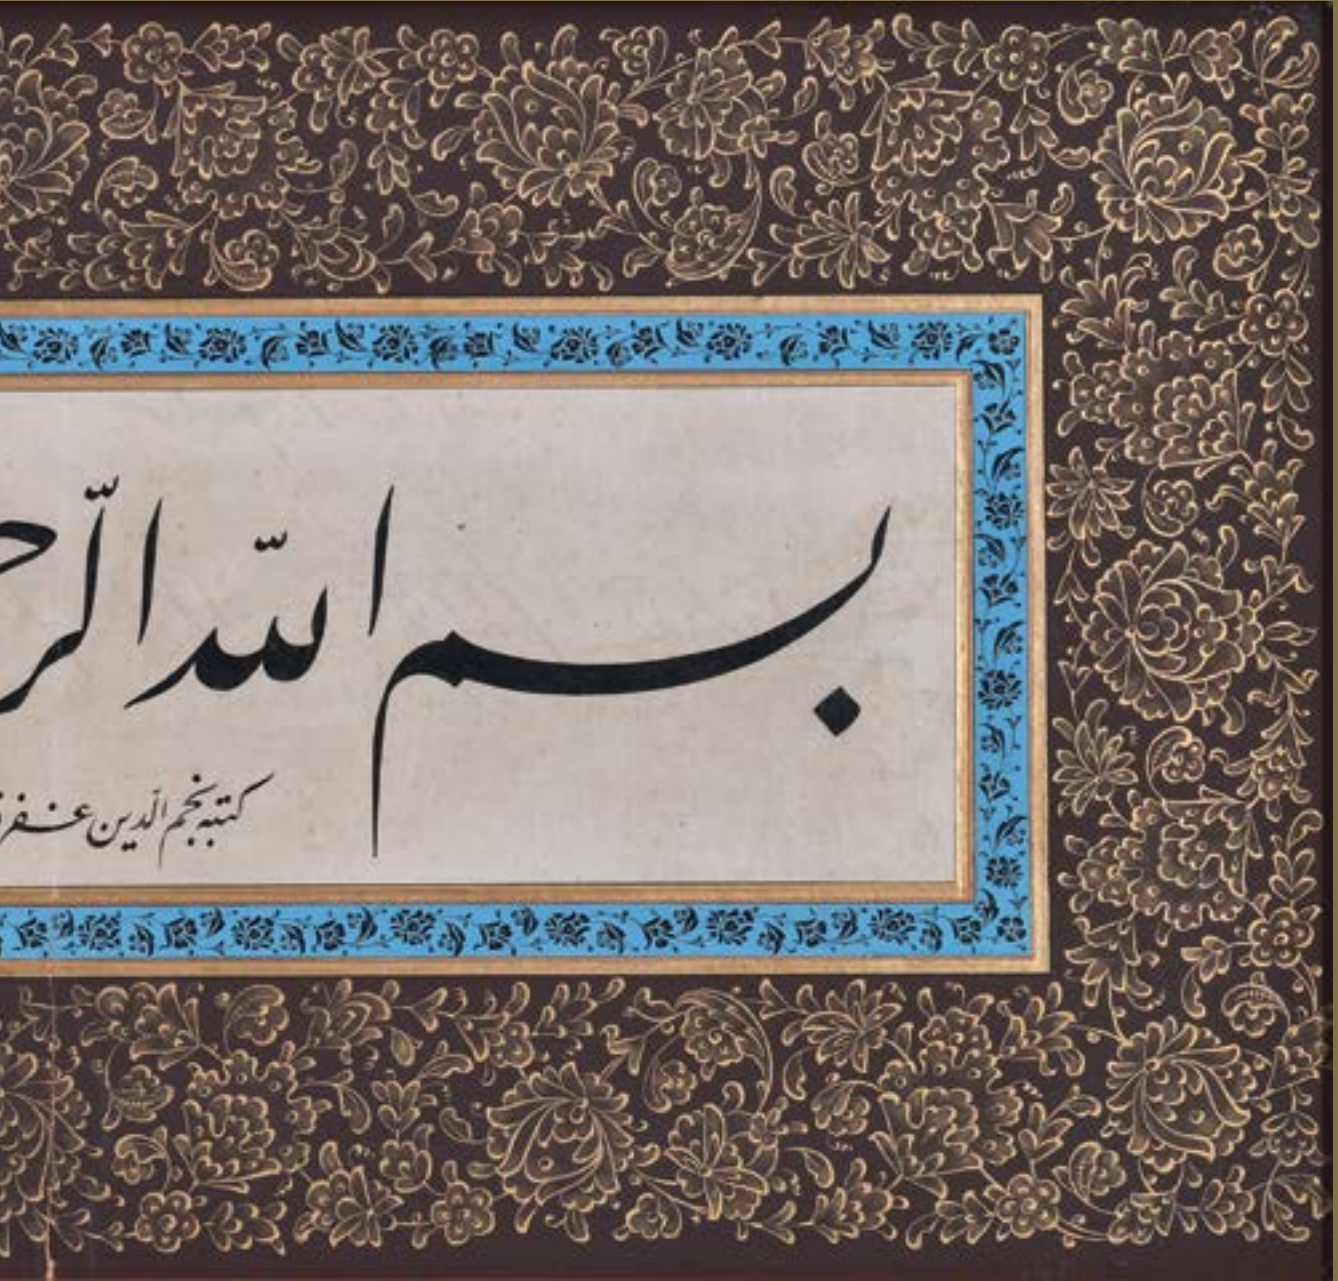 بسم الله الرح
كتبه نجم الدين غفر